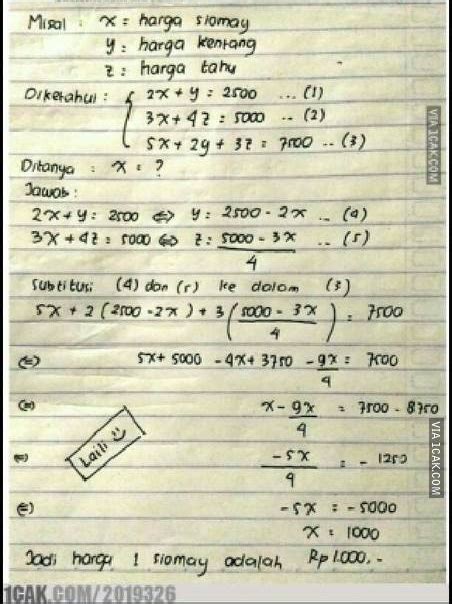 Misal : x = harga siomay
y : harga kentang
z : harga tahu
Diketahui : { 2x + y = 2500 ... (1)
3x + 4z : 5000 .. (2)
5x + 2y + 3z = 7500 .. (3)
Ditanya : x = ?
Jawab :
2x + y : 2500 ⇔ y : 2500 - 2x .. (4)
3x + 4z : 5000 ⇔ z : 5000 - 3x .. (5)
4
Subtitusi (4) dan (5) ke dalam (3)
5x + 2 (2500 - 2x) + 3 (5000 - 3x) : 7500
4
⇔ 5x + 5000 - 4x + 3750 - 9x = 7500
4
⇔ x - 9x = 7500 - 8750
4
⇔ -5x = - 1250
4
⇔ -5x = -5000
x : 1000
Laili
Jadi harga 1 siomay adalah Rp 1.000,-
VIA 1CAK.COM
VIA 1CAK.COM
1CAK.COM/2019326